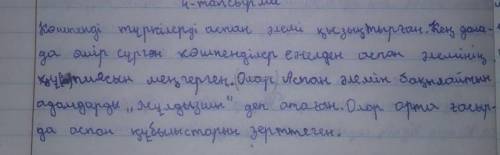 4-тапсырма
Көшпенді түркілерді аспан әлемі қызықтырған. Кең дала-
да өмір сүрген көшпенділер ежелден аспан әлемінің
құпиясын меңгерген. Олар Аспан әлемін бақылайтын
адамдарды "жұлдызшы" деп атаған. Олар орта ғасыр-
да аспан құбылыстарын зерттеген.